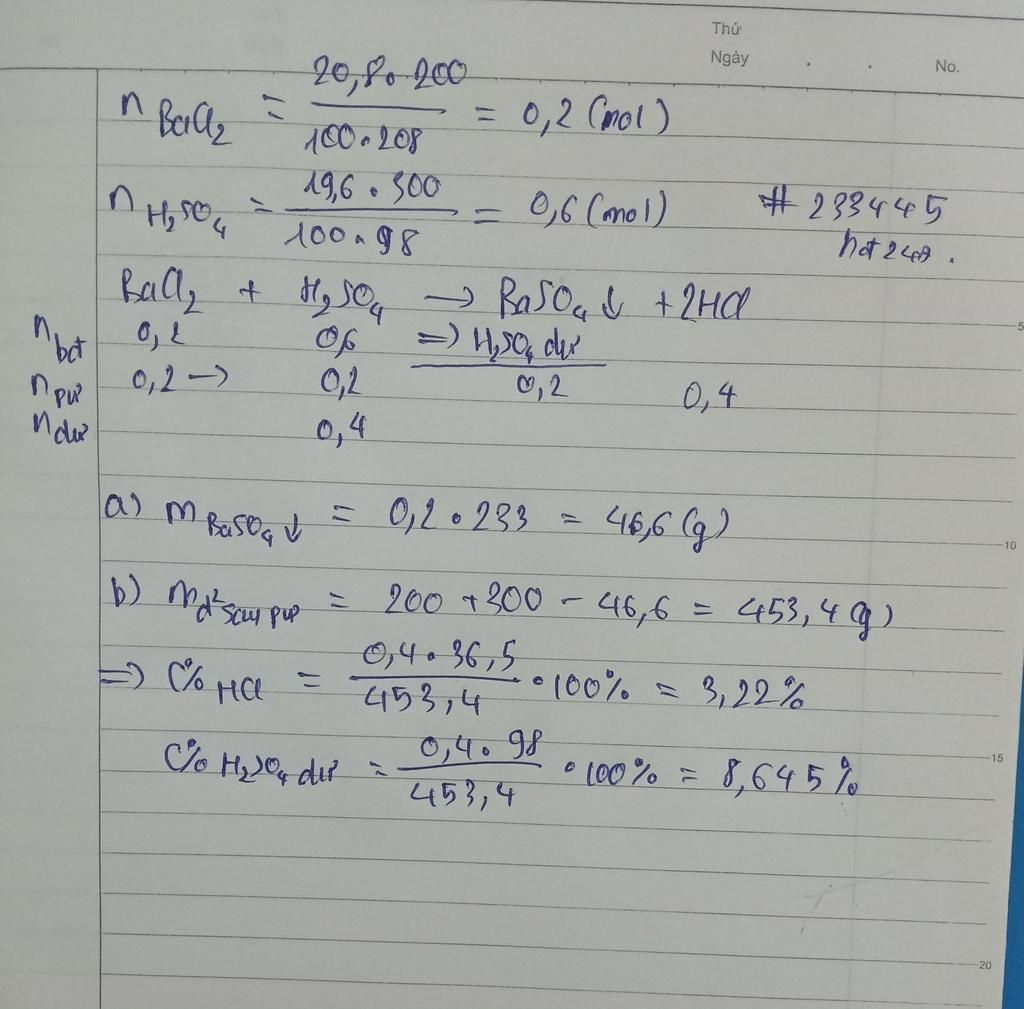 Thứ
Ngày . . No.
n BaCl2 = 20,8.200 / 100.208 = 0,2 (mol)
n H2SO4 = 19,6.300 / 100.98 = 0,6 (mol) # 233445
BaCl2 + H2SO4 → BaSO4↓ + 2HCl
nbđ 0,2 0,6 => H2SO4 dư
5
npư 0,2 → 0,2 0,2 0,4
ndư 0,4
a) m BaSO4↓ = 0,2.233 = 46,6 (g)
10
b) m d² sau pư = 200 + 300 - 46,6 = 453,4 (g)
=> C% HCl = 0,4.36,5 / 453,4 . 100% = 3,22%
C% H2SO4 dư = 0,4.98 / 453,4 . 100% = 8,645%
15
20